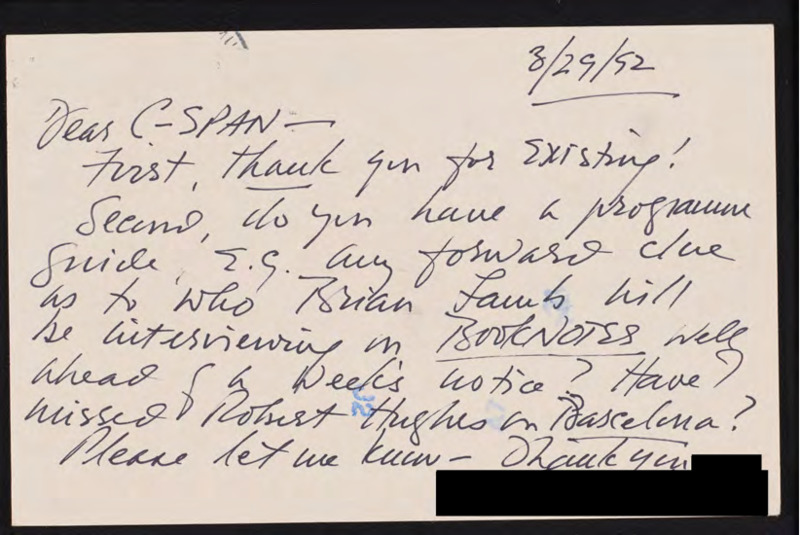 3/29/92
Dear C-SPAN—
First, thank you for existing!
Second, do you have a programme
guide, E.G. any forward clue
as to who Brian Lamb will
be interviewing on BOOKNOTES well
ahead of a week's notice? Have I
missed Robert Hughes on Barcelona?
Please let me know— Thank you